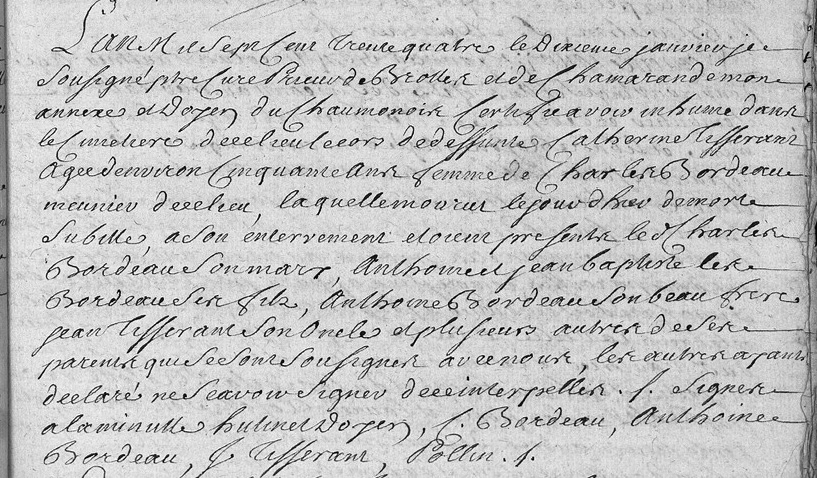 L'an Mil Sept Cent trente quatre le Dixieme janvier je
Soussigné ptre Curé Prieur de Brottes et de Chamarandes mon
annexe et Doyen du Chaumonois Certifie avoir inhumé dans
le Cimetiere de ce lieu le cors de deffunte Catherine Tisserant
Agee d'environ Cinquante Ans femme de Charles Bordeau
meunier de ce lieu, laquelle mourut le jour d'hier de mort
Subitte, a Son enterrement etoient presents led Charles
Bordeau Son mary, Anthoine et jean baptiste les
Bordeau Ses fils, Anthoine Bordeau Son beau frere
jean Tisserant Son Oncle et plusieurs autres de Ses
parents qui Se Sont Soussignes avec nous, les autres ayant
declaré ne Scavoir Signer de ce interpelles. f. Signes
a la minutte hutinet Doyen, C. Bordeau, Anthoine
Bordeau, J Tisserant, Pollin. f.